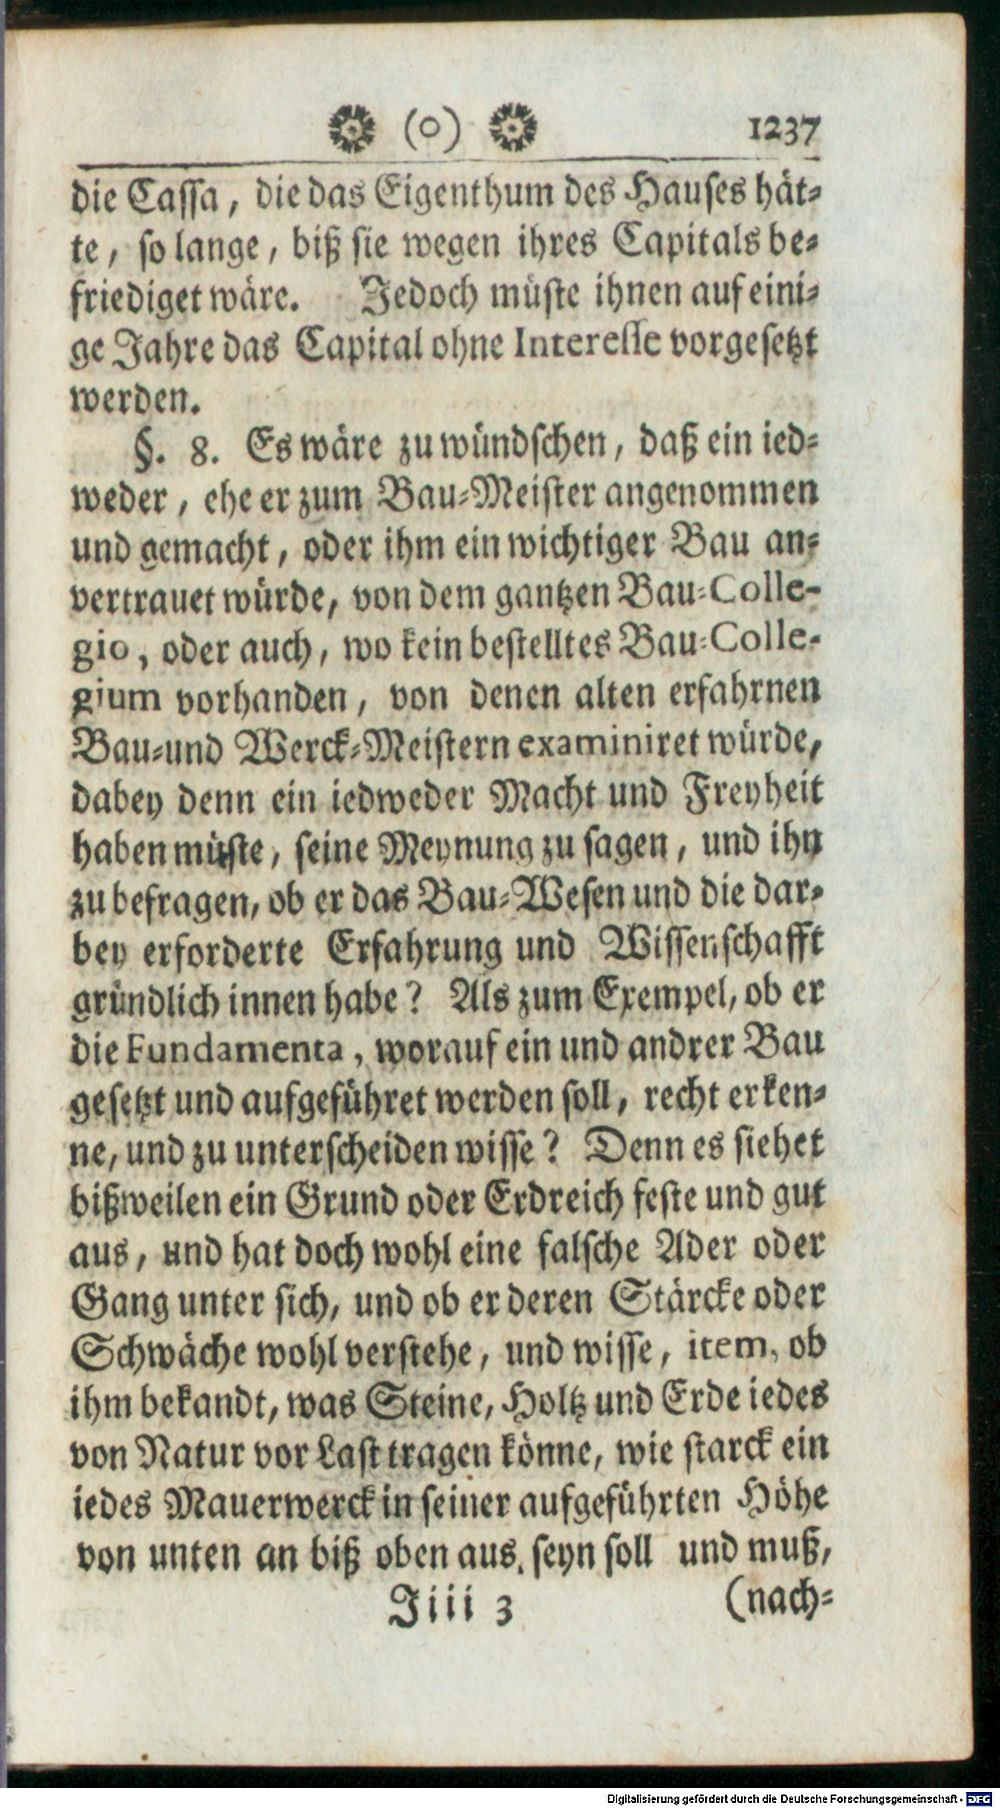 (o) 1237
die Cassa, die das Eigenthum des Hauses hät-
te, so lange, biß sie wegen ihres Capitals be-
friediget wäre. Jedoch müste ihnen auf eini-
ge Jahre das Capital ohne Interesse vorgesetzt
werden.
§. 8. Es wäre zu wündschen, daß ein ied-
weder, ehe er zum Bau-Meister angenommen
und gemacht, oder ihm ein wichtiger Bau an-
vertrauet würde, von dem gantzen Bau-Colle-
gio, oder auch, wo kein bestelltes Bau-Colle-
gium vorhanden, von denen alten erfahrnen
Bau-und Werck-Meistern examiniret würde,
dabey denn ein iedweder Macht und Freyheit
haben müste, seine Meynung zu sagen, und ihn
zu befragen, ob er das Bau-Wesen und die dar-
bey erforderte Erfahrung und Wissenschafft
gründlich innen habe? Als zum Exempel, ob er
die Fundamenta, worauf ein und andrer Bau
gesetzt und aufgeführet werden soll, recht erken-
ne, und zu unterscheiden wisse? Denn es siehet
bißweilen ein Grund oder Erdreich feste und gut
aus, und hat doch wohl eine falsche Ader oder
Gang unter sich, und ob er deren Stärcke oder
Schwäche wohl verstehe, und wisse, item, ob
ihm bekandt, was Steine, Holtz und Erde iedes
von Natur vor Last tragen könne, wie starck ein
iedes Mauerwerck in seiner aufgeführten Höhe
von unten an biß oben aus, seyn soll und muß,
Jiii 3 (nach-
Digitalisierung gefördert durch die Deutsche Forschungsgemeinschaft - DFG